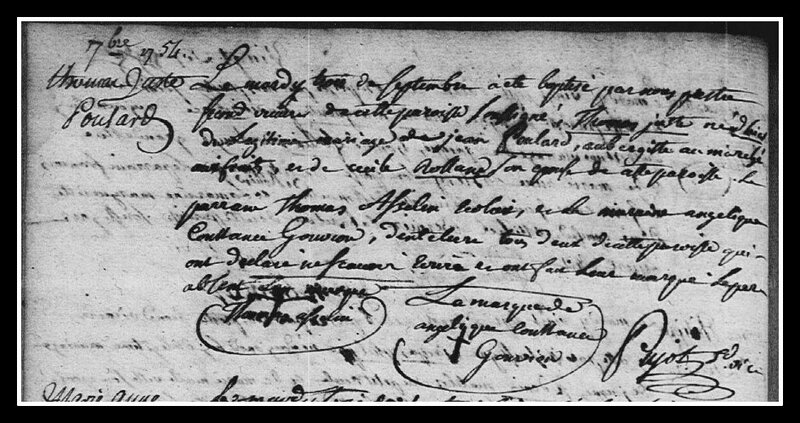 7bre 1754.
thomas Juste
Poulard
Le mardy trois de septembre a eté baptisé par nous pretre
grand vicaire de cette paroisse soussigné, Thomas juste né d'hier
du legitime mariage de jean Poulard, aubergiste au marché
, et de cecile Rolland son epouse de cette paroisse. Le
parrain thomas Asselin ecolier, et la marraine angelique
Couttance Gouvion, dentelliere tous deux de cette paroisse qui
ont declaré ne scavoir ecrire et ont fait leur marque le pere
absent
thomas asselin
La marque de
angelique Couttance
Gouvion
Marie anne